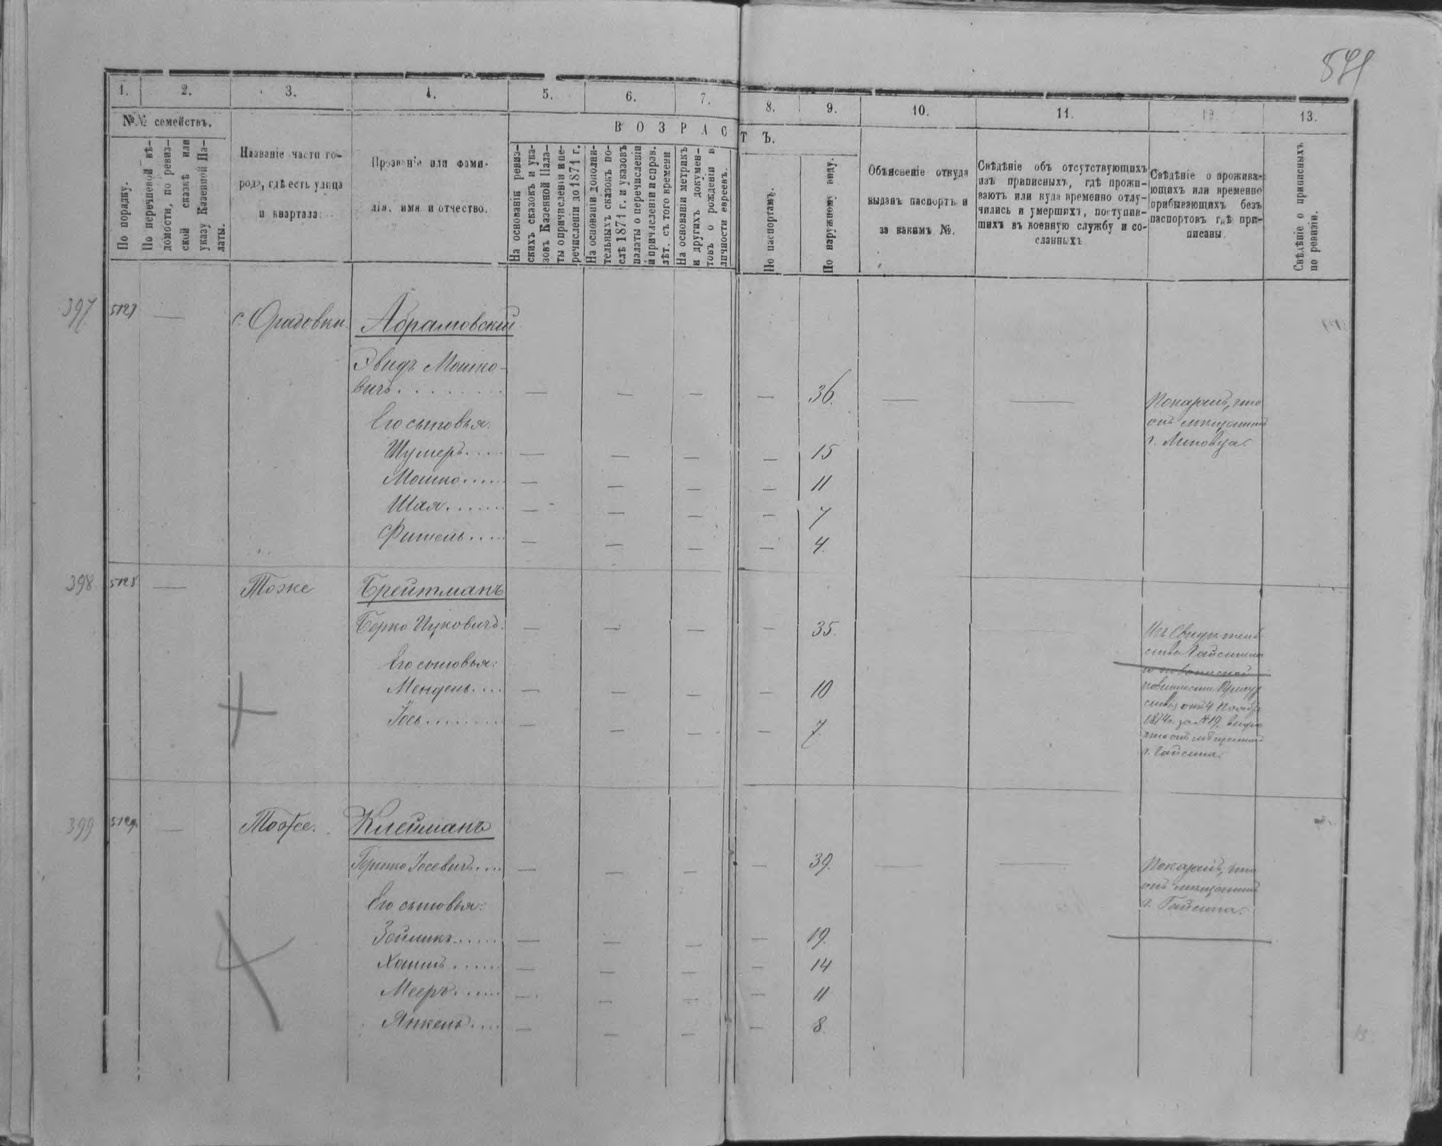 1. 2. 3. 4. 5. 6. 7. 8. 9. 10. 11. 12 13.
№№ семействъ.
По порядку.
По перечневой вѣ-
домости, по ревиз-
ской сказкѣ или
указу Казенной Па-
латы.
Названіе части го-
рода, гдѣ есть улица
и квартала.
Прозваніе или фами-
лія, имя и отчество.
ВОЗРАСТЪ.
На основаніи ревиз-
скихъ сказокъ и ука-
зовъ Казенной Пала-
ты о причисленіи и пе-
речисленіи до 1871 г.
На основаніи дополни-
тельныхъ сказокъ по-
слѣ 1871 г. и указовъ
палаты о перечисленіи
и причисленіи и справ.
лѣт. съ того времени
На основаніи метрикъ
и другихъ докумен-
товъ о рожденіи и
личности евреевъ.
По паспортамъ.
По наружному виду.
Объясненіе откуда
выданъ паспортъ и
за какимъ №.
Свѣдѣніе объ отсутствующихъ
изъ приписныхъ, гдѣ прожи-
ваютъ или куда временно отлу-
чились и умершихъ, поступив-
шихъ въ военную службу и со-
сланныхъ
Свѣдѣніе о прожива-
ющихъ или временно
прибывающихъ безъ
паспортовъ гдѣ при-
писаны.
Свѣдѣніе о приписныхъ
по ревизіи.
397 5127 — с. Оратовки Абрамовскій
Мошко-
вичъ — — — — 36. — — Показалъ, что
Его сыновья: онъ мѣщанинъ
Шумеръ — — — — 15 г. Липовца.
Мошко — — — — 11
Шая — — — — 7
Фишель — — — — 4
398 5128 — Тоже Брейтманъ
Берко Ицковичъ. — — — — 35. — —
Его сыновья:
Мендель — — — — 10
Іось — — — — 7
что онъ мѣщанинъ
г. Гайсина.
399 5129. — Тоже. Клейманъ
Іосевичъ — — — — 39. — — Показалъ, что
онъ мѣщанинъ
Его сыновья: г. Гайсина.
Зейликъ — — — — 19.
Хаимъ — — — — 14
Мееръ — — — — 11
Янкель — — — — 8